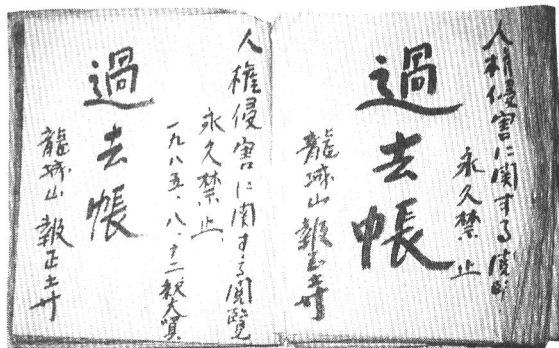 人権侵害に関する閲覧
永久禁止
過去帳
龍城山 報正寺
人権侵害に関する閲覧
永久禁止
一九八五、八、十二
過去帳
龍城山 報正寺